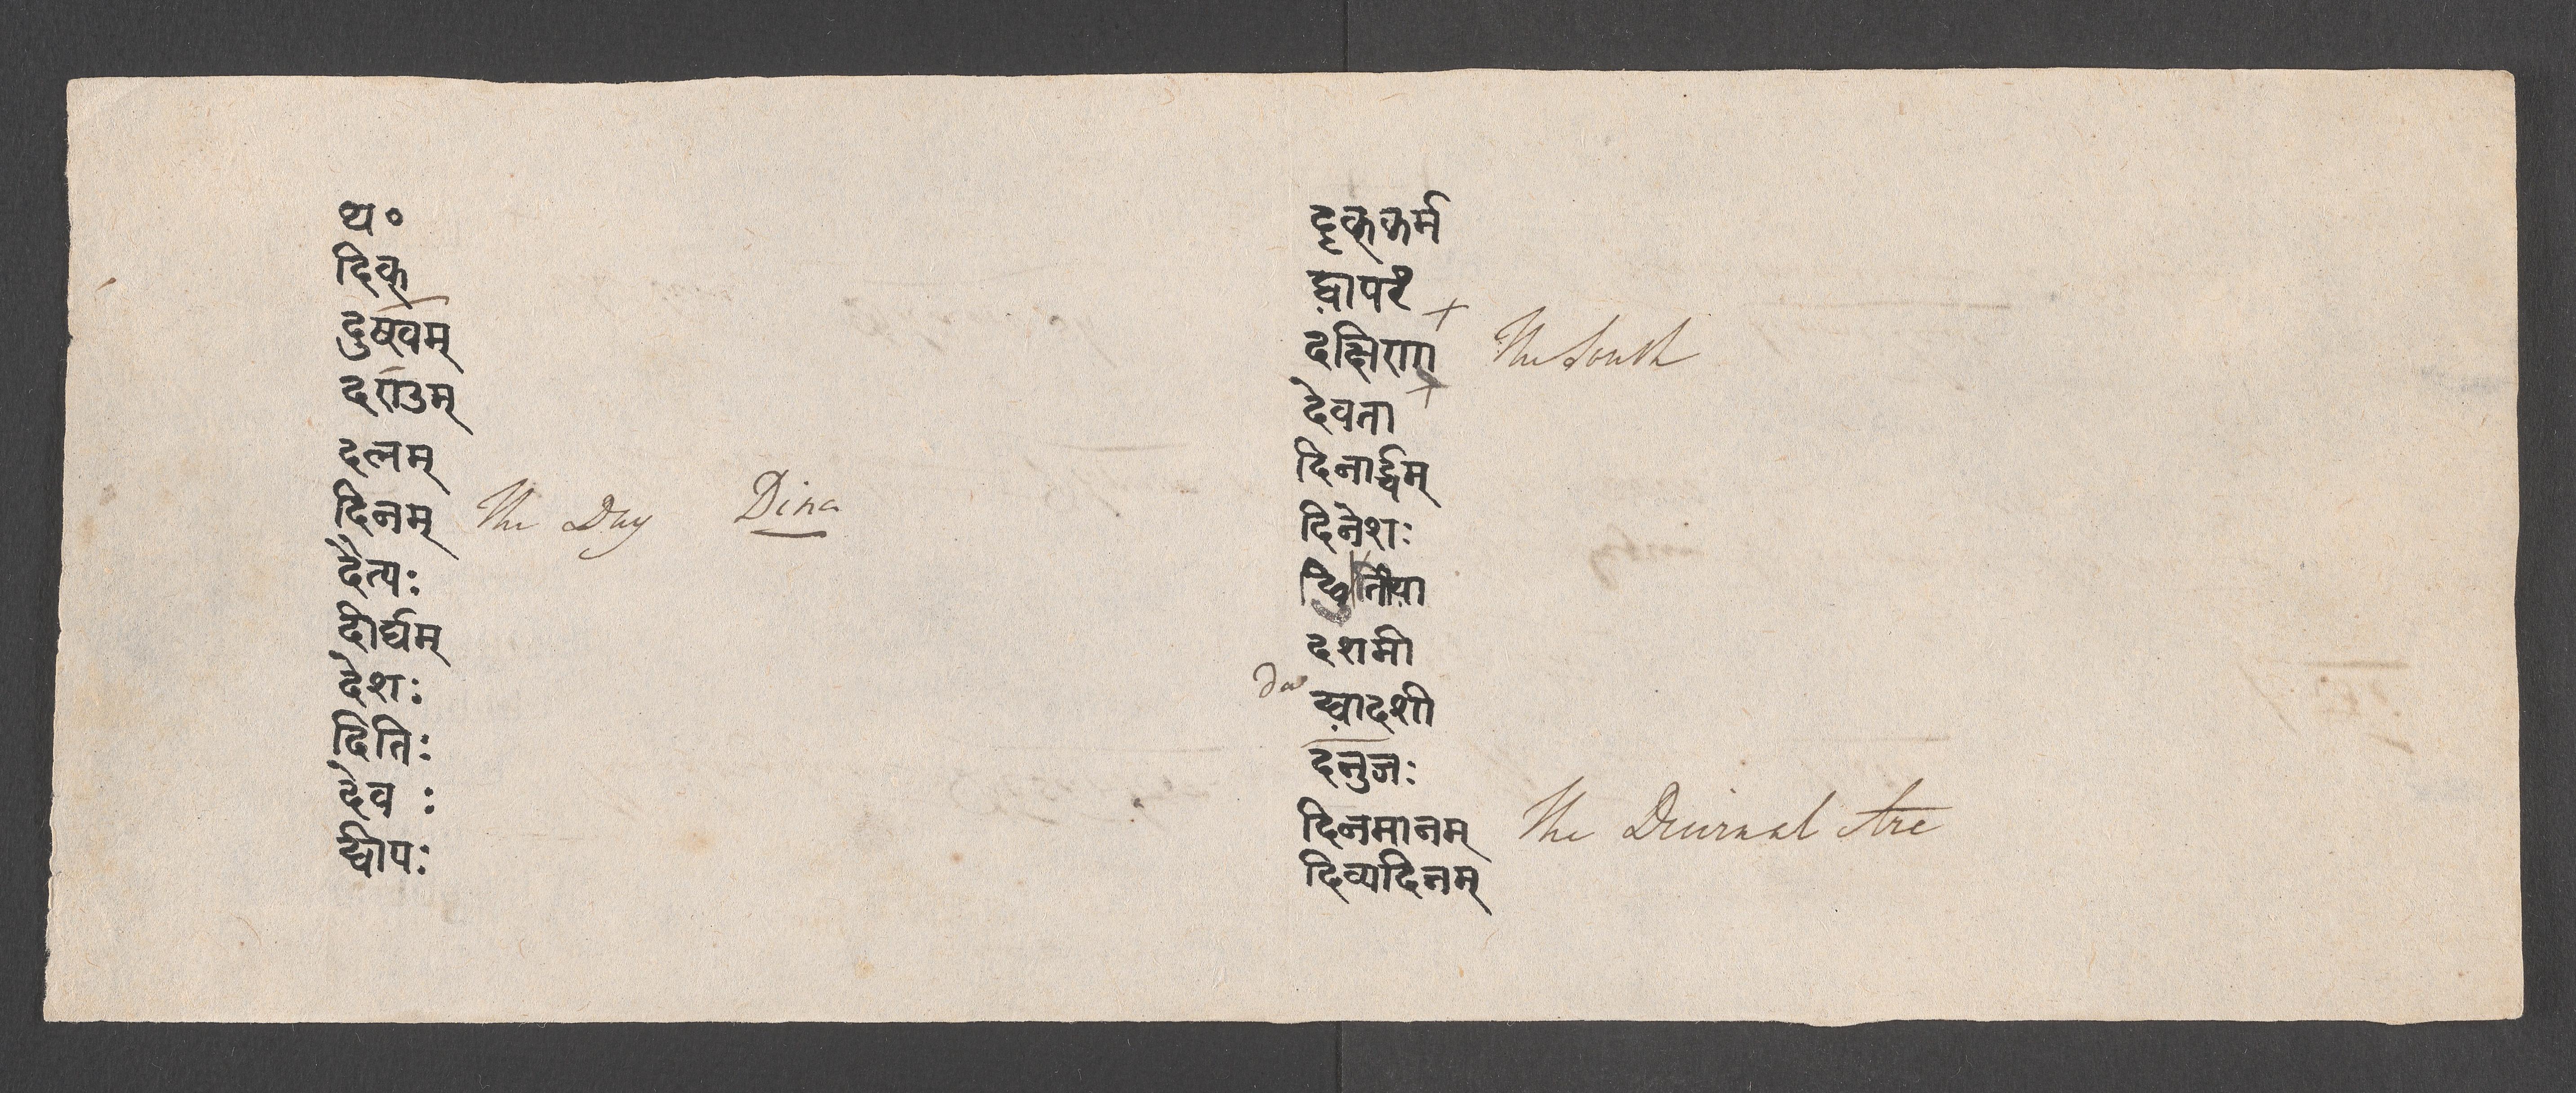 थ०
दिक्
दुष्खम्
दण्डम्
दलम्
दिनम् The Day Dina
दैत्यः
दीर्घम्
देशः
दितिः
देवः
द्वीपः
दृक्कर्म
द्वापरं
दक्षिणा The South
देवता
दिनार्द्धम्
दिनेशः
द्वितीया
दशमी
da द्वादशी
दनुजः
दिनमानम् The Diurnal Arc
दिव्यदिनम्